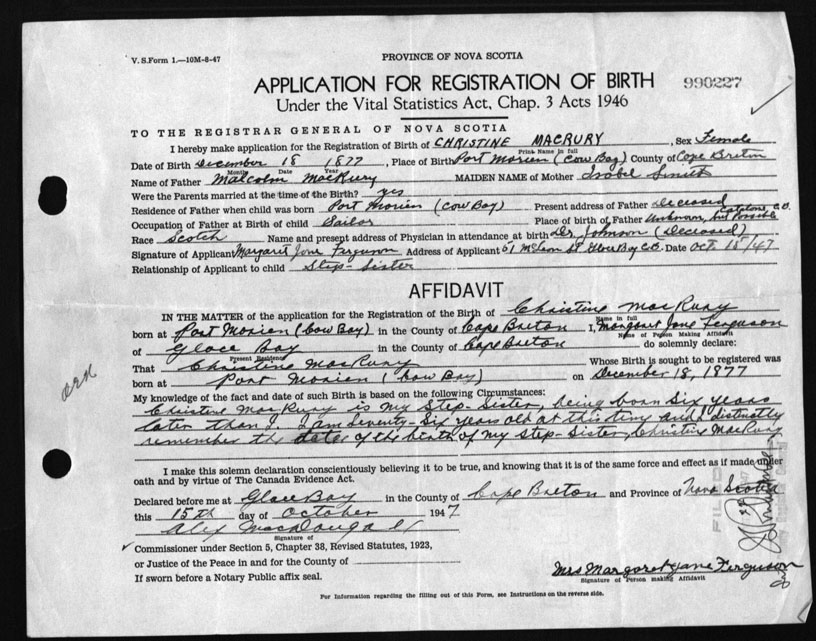 V. S. Form 1.—10M-8-47
PROVINCE OF NOVA SCOTIA
APPLICATION FOR REGISTRATION OF BIRTH
990227
Under the Vital Statistics Act, Chap. 3 Acts 1946
TO THE REGISTRAR GENERAL OF NOVA SCOTIA
I hereby make application for the Registration of Birth of CHRISTINE MACRURY, Sex Female
Print Name in full
Date of Birth December 18 1877, Place of Birth Port Morien (Cow Bay) County of Cape Breton
Month Date Year
Name of Father Malcolm MacRury MAIDEN NAME of Mother Isobel Smith
Were the Parents married at the time of the Birth? yes
Residence of Father when child was born Port Morien (Cow Bay) Present address of Father deceased
Occupation of Father at Birth of child Sailor Place of birth of Father Unknown, but Possible C.B.
Race Scotch Name and present address of Physician in attendance at birth Dr. Johnson (Deceased)
Signature of Applicant Margaret Jane Ferguson Address of Applicant 51 McLean St Glace Bay C.B. Date Oct. 15/47
Relationship of Applicant to child Step-Sister
AFFIDAVIT
IN THE MATTER of the application for the Registration of the Birth of Christine MacRury
Name in full
born at Port Morien (Cow Bay) in the County of Cape Breton I, Margaret Jane Ferguson
Name of Person Making Affidavit
of Glace Bay in the County of Cape Breton do solemnly declare:
Present Residence
That Christine MacRury Whose Birth is sought to be registered was
born at Port Morien (Cow Bay) on December 18, 1877
My knowledge of the fact and date of such Birth is based on the following Circumstances:
Christine MacRury is my Step-Sister, being born six years
later than I. I am seventy-six years old at this time and distinctly
remember the date of the birth of my step-sister, Christine MacRury
I make this solemn declaration conscientiously believing it to be true, and knowing that it is of the same force and effect as if made under
oath and by virtue of The Canada Evidence Act.
Declared before me at Glace Bay in the County of Cape Breton and Province of Nova Scotia
this 15th day of October 1947
Alex MacDougall
Signature of
Commissioner under Section 5, Chapter 38, Revised Statutes, 1923,
or Justice of the Peace in and for the County of
If sworn before a Notary Public affix seal.
Mrs Margaret Jane Ferguson
Signature of Person making Affidavit
For Information regarding the filling out of this Form, see Instructions on the reverse side.